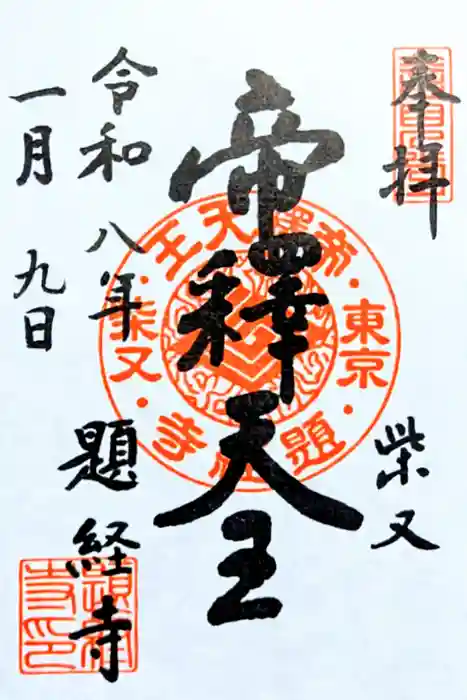 奉拝
柴又
帝釋天王
令和八年
一月九日
題経寺
帝釋天王
東京
柴又
題経寺